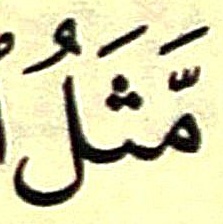 مَّثَلُ